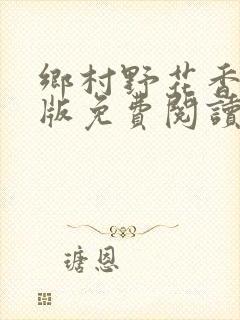 鄉村野花香
版免費閱讀
瑭恩